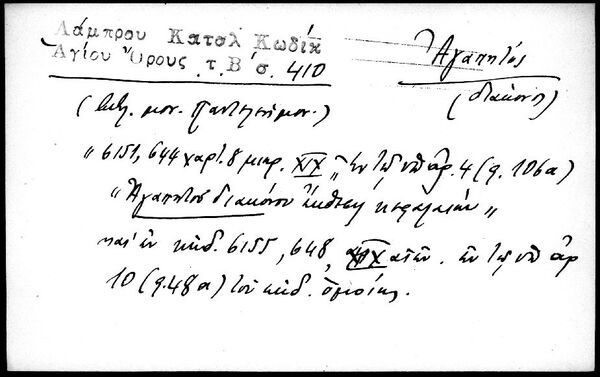 Λάμπρου Κατσλ Κωδίκ
Αγίου Όρους τ. Β΄ σ. 410
Ἀγαπητός
(διάκονος)
(βιβλ. μον. Παντελεήμον.)
"6151, 644 χαρτ. 8 μικρ. XIX" ἐν τῷ ὑπ' ἀρ. 4 (φ. 106α)
"Ἀγαπητοῦ διακόνου ἔκθεσις κεφαλαίων"
καὶ ἐν κώδ. 6155, 648, αἰών. ἐν τῷ ὑπ' ἀρ
10 (φ. 48α) τοῦ κώδ. ὁμοίως.